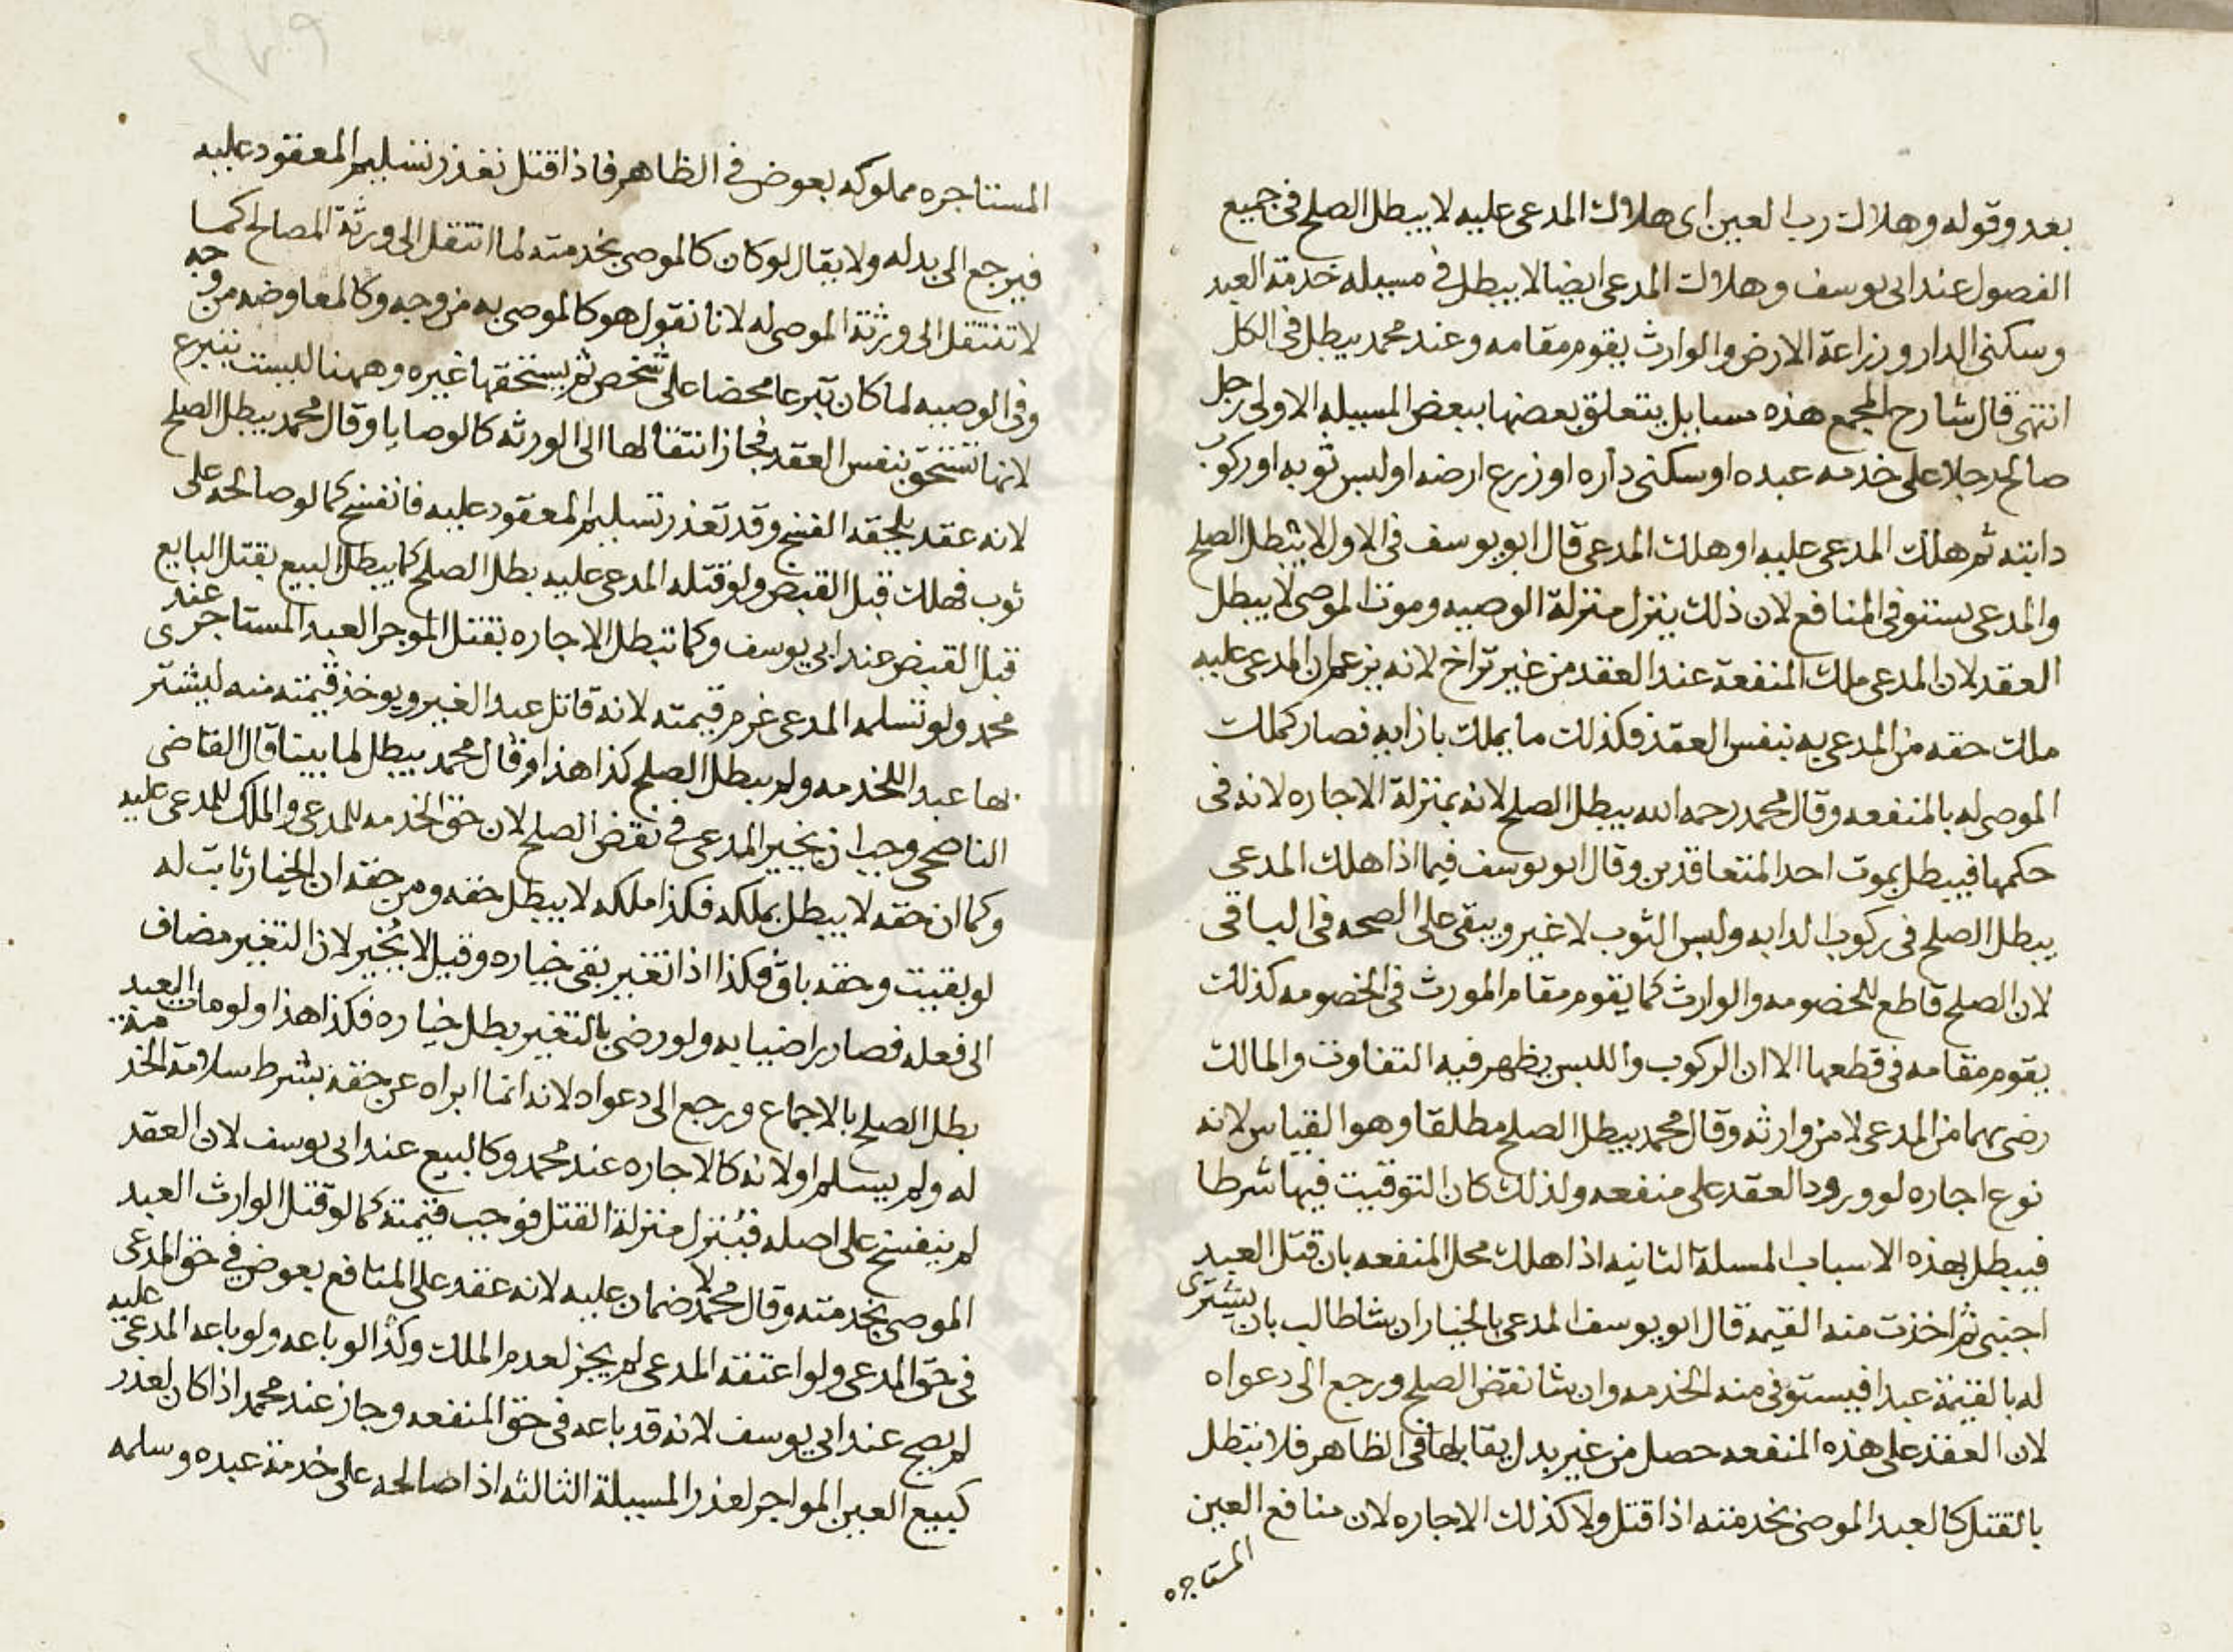 بعد وقوله وهلاك رب العين اى هلاك المدعى عليه لا يبطل الصلح فى جميع
الفصول عند ابى يوسف وهلاك المدعى ايضا لا يبطل فى مسيله خدمة العبد
وسكنى الدار وزراعة الارض والوارث يقوم مقامه وعند محمد يبطل فى الكل
انتهى قال شارح المجمع هذه مسايل يتعلق بعضها ببعض المسيله الاولى رجل
صالح رجلا على خدمه عبده او سكنى داره او زرع ارضه او لبس ثوبه او ركوب
دابته ثم هلك المدعى عليه او هلك المدعى قال ابو يوسف فى الاول لا يبطل الصلح
والمدعى يستوفى المنافع لان ذلك ينزل منزلة الوصيه وموت الموصى لا يبطل
العقد لان المدعى ملك المنفعة عند العقد من غير تراخ لانه يزعم ان المدعى عليه
ملك حقه من المدعى به بنفس العقد فكذلك ما يملك بازايه فصار كملك
الموصى له بالمنفعه وقال محمد رحمه الله يبطل الصلح لانه بمنزلة الاجاره لانه فى
حكمها فيبطل بموت احد المتعاقدين وقال ابو يوسف فيما اذا هلك المدعى
يبطل الصلح فى ركوب الدابه ولبس الثوب لا غير ويبقى على الصحه فى الباقى
لان الصلح قاطع للخصومه والوارث كما يقوم مقام المورث فى الخصومه كذلك
يقوم مقامه فى قطعها الا ان الركوب واللبس يظهر فيه التفاوت والمالك
رضى بهما من المدعى لا من وارثه وقال محمد يبطل الصلح مطلقا وهو القياس لانه
نوع اجاره لو ورود العقد على منفعه ولذلك كان التوقيت فيها شرطا
فيبطل بهذه الاسباب المسلة الثانيه اذا هلك محل المنفعه بان قتل العبد
اجنبى ثم اخذت منه القيمه قال ابو يوسف المدعى بالخيار ان شا طالب بان يشترى
له بالقيمة عبدا فيستوفى منه الخدمه وان شا نقض الصلح ورجع الى دعواه
لان العقد على هذه المنفعه حصل من غير بدل يقابلها فى الظاهر فلا يبطل
بالقتل كالعبد الموصى بخدمته اذا قتل ولا كذلك الاجاره لان منافع العين
المستاجره
المستاجره مملوكه بعوض فى الظاهر فاذا قتل تعذر تسليم المعقود عليه
فيرجع الى بدله ولا يقال لو كان كالموصى بخدمته لما انتقل الى ورثة المصالح كما
لا تنتقل الى ورثة الموصى له لانا نقول هو كالموصى به من وجه وكالمعاوضه من وجه
وفى الوصيه لما كان تبرعا محضا على شخص لم يستحقها غيره وههنا ليست بتبرع
لانها تستحق بنفس العقد فجاز انتقالها الى الورثه كالوصايا وقال محمد يبطل الصلح
لانه عقد يلحقه الفسخ وقد تعذر تسليم المعقود عليه فانفسخ كما لو صالحه على
ثوب فهلك قبل القبض ولو قتله المدعى عليه بطل الصلح كما يبطل البيع بقتل البايع
قبل القبض عند ابى يوسف وكما تبطل الاجاره بقتل الموجر العبد المستاجر عند
محمد ولو تسلمه المدعى غرم قيمته لانه قاتل عبد الغير ويوخذ قيمته منه ليشترى
بها عبدا للخدمه ولم يبطل الصلح كذا هذا وقال محمد يبطل لما بينا قال القاضى
الناصحى وجب ان يخير المدعى فى نقض الصلح لان حق الخدمه للمدعى والملك للمدعى عليه
وكما ان حقه لا يبطل بملكه فكذا ملكه لا يبطل حقه ومن حقه ان الخيار ثابت له
لو بقيت وحقه باق فكذا اذا تغير بقى خياره وقيل لا يخير لان التغيير مضاف
الى فعله فصار راضيا به ولو رضى بالتغيير بطل خياره فكذا هذا ولو مات العبد
بطل الصلح بالاجماع ورجع الى دعواه لانه انما ابراه عن حقه بشرط سلامة الخدمة
له ولم يسلم او لانه كالاجاره عند محمد وكالبيع عند ابى يوسف لان العقد
لم ينفسخ على اصله فينزل منزلة القتل فوجب قيمته كما لو قتل الوارث العبد
الموصى بخدمته وقال محمد لا ضمان عليه لانه عقد على المنافع بعوض فى حق المدعى
فى حق المدعى ولو اعتقه المدعى لم يجز لعدم الملك وكذا لو باعه ولو باعه المدعى عليه
لم يصح عند ابى يوسف لانه قد باعه فى حق المنفعه وجاز عند محمد اذا كان لعذر
كبيع العين المواجر لعذر المسيلة الثالثه اذا صالحه على خدمة عبده وسلمه